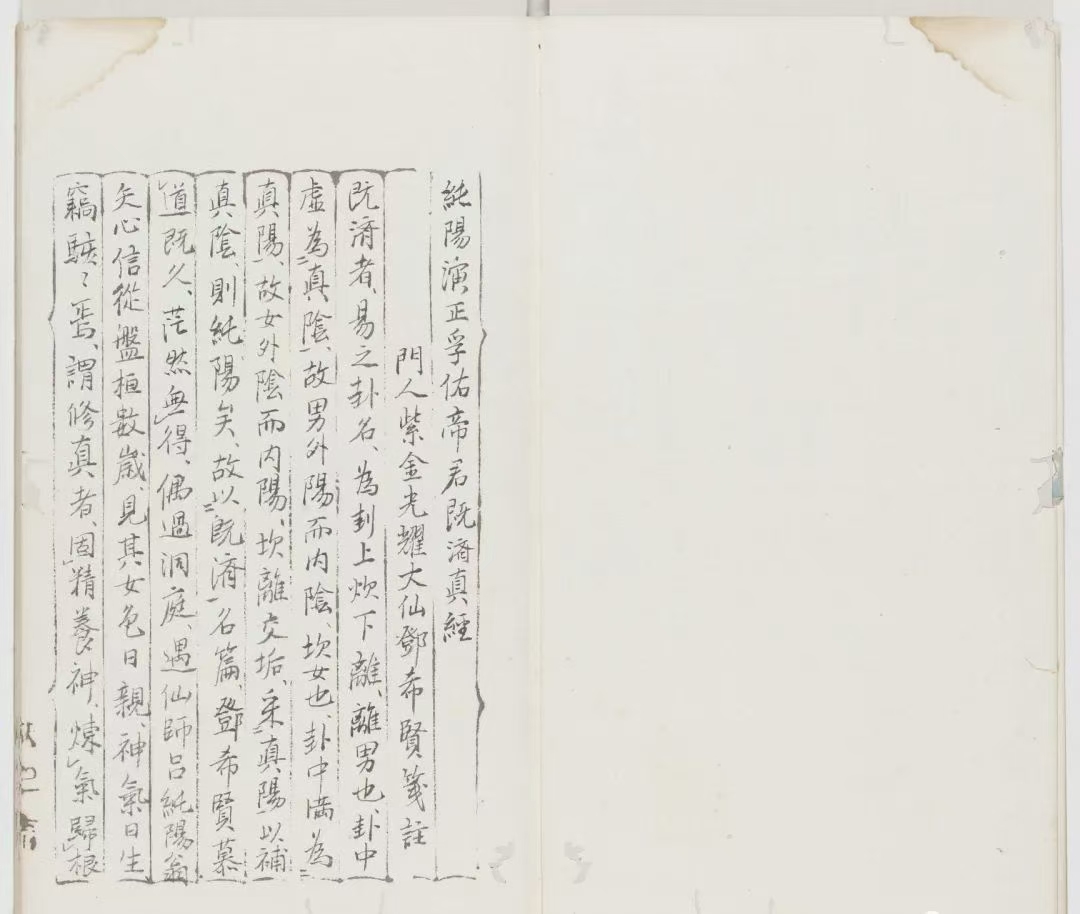 純陽演正孚佑帝君既濟真經
門人紫金光耀大仙鄧希賢箋註
既濟者、易之卦名、為卦上坎下離、離男也、卦中
虛為真陰、故男外陽而内陰、坎女也、卦中滿為
真陽、故女外陰而内陽、坎離交垢、采真陽以補
真陰、則純陽矣、故以既濟名篇、鄧希賢慕
道既久、茫然無得、偶過洞庭、遇仙師呂純陽翁
矢心信從盤桓數歲、見其女色日親、神氣日生
竊駭々焉、謂修真者、固精養神、煉氣歸根